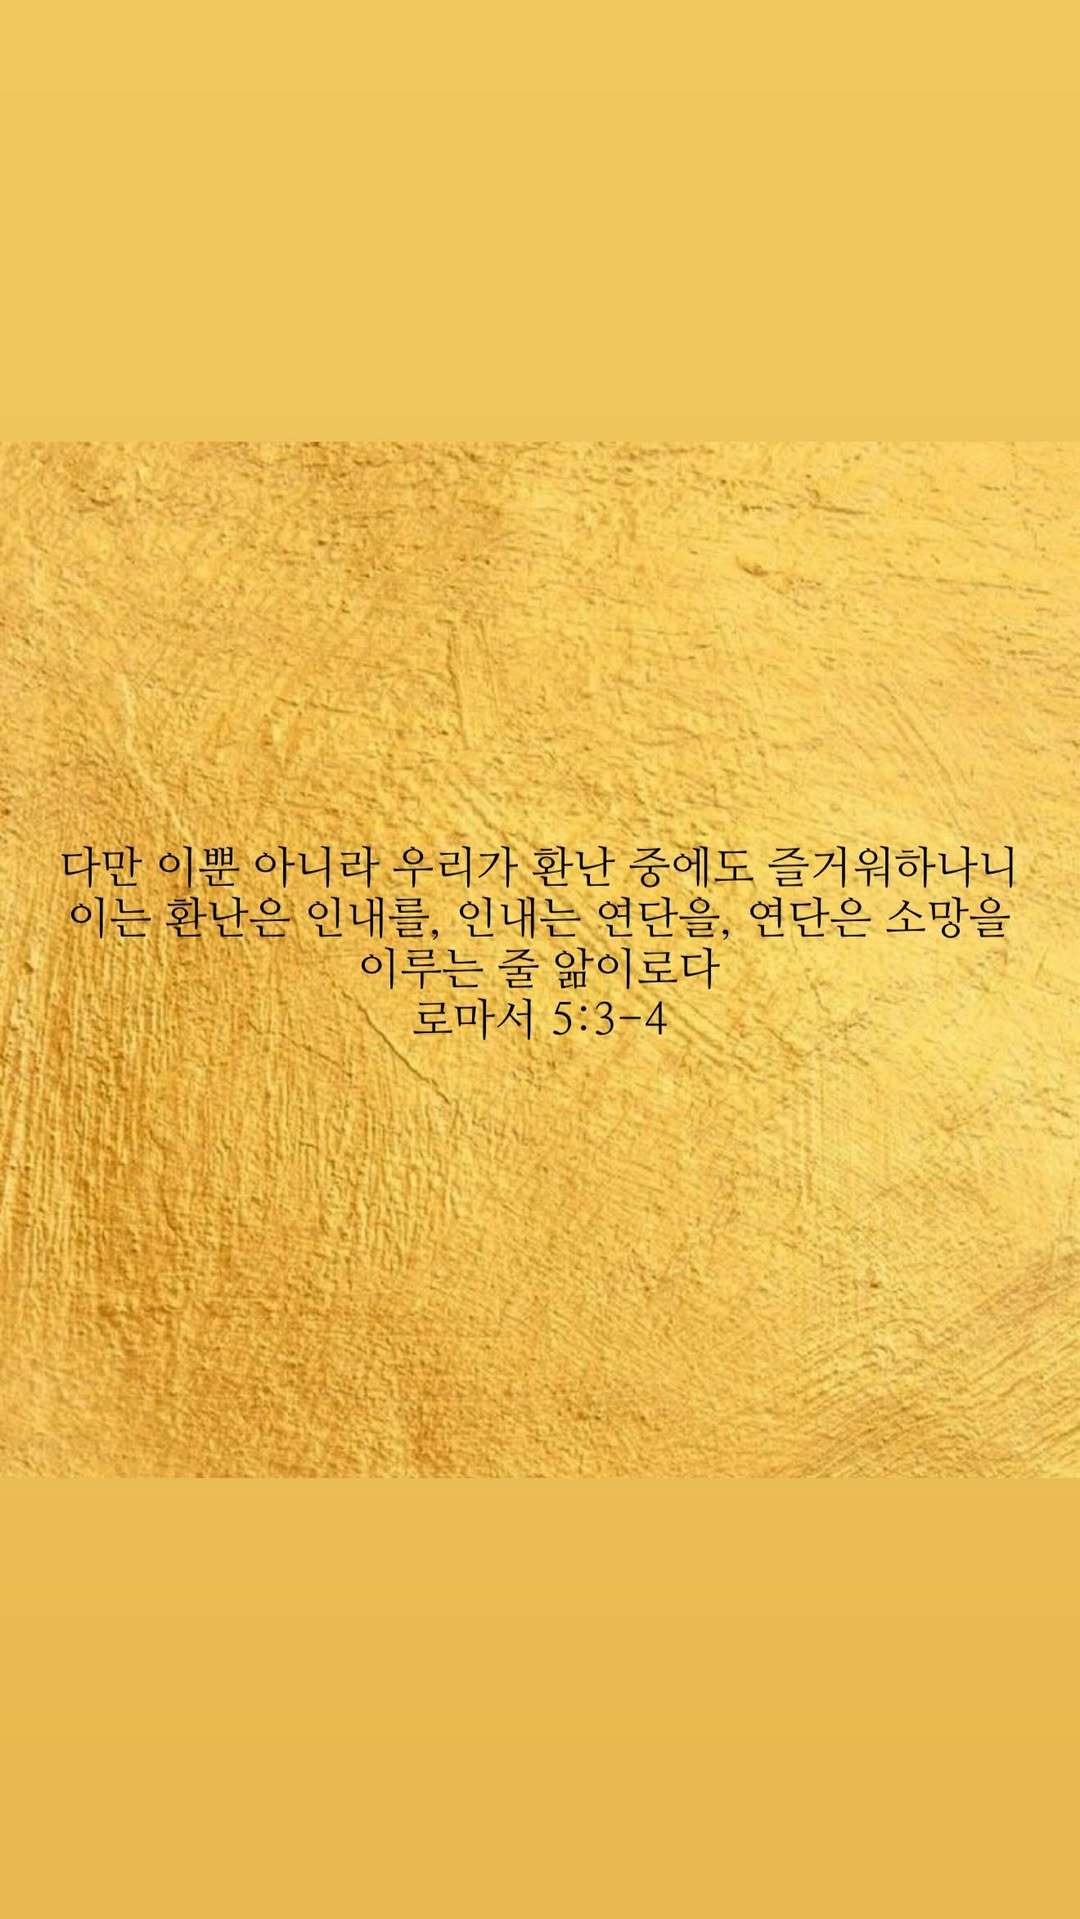 다만 이뿐 아니라 우리가 환난 중에도 즐거워하나니
이는 환난은 인내를, 인내는 연단을, 연단은 소망을
이루는 줄 앎이로다
로마서 5:3-4